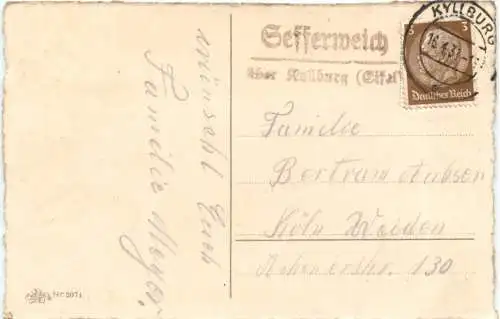 wünscht Euch
Familie Meyer,
Sefferweich
über Kyllburg (Eifel)
KYLLBURG
3 3
Deutsches Reich
Familie
Bertram
Köln Weiden
130